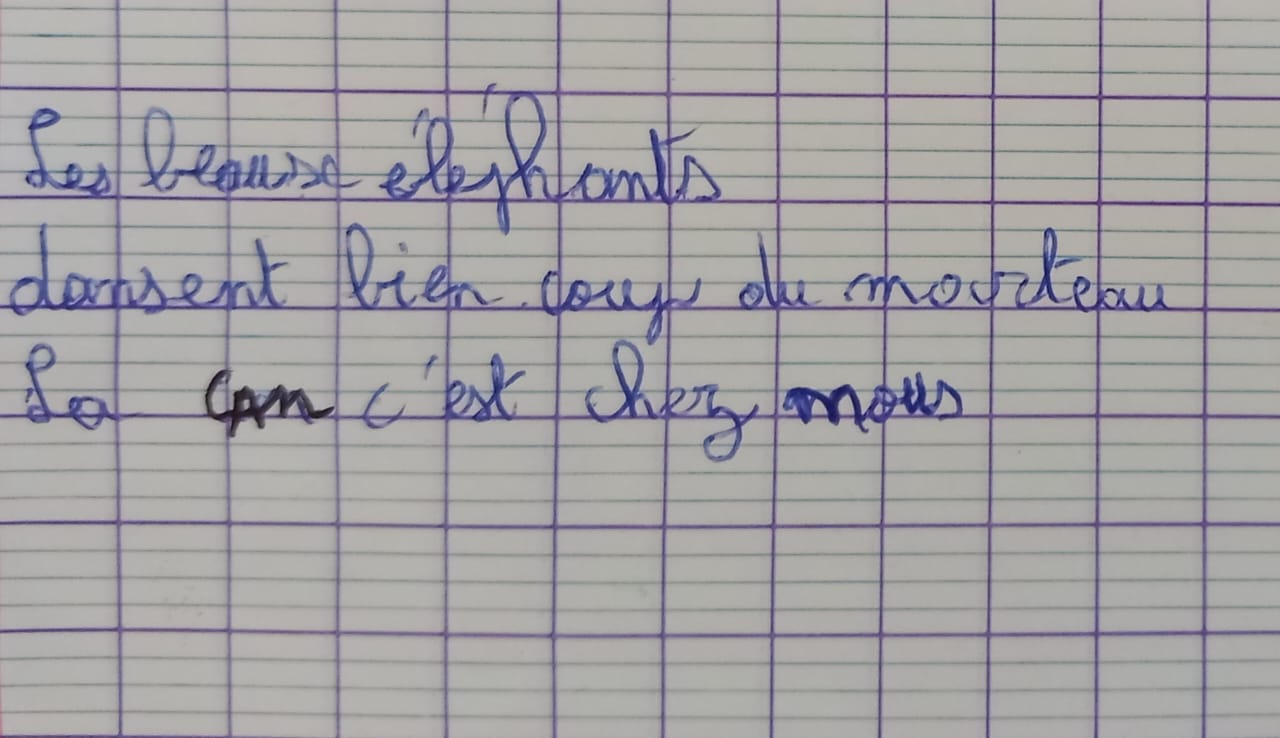 Les beaux éléphants
dansent bien coup du marteau
La CAN c'est chez nous